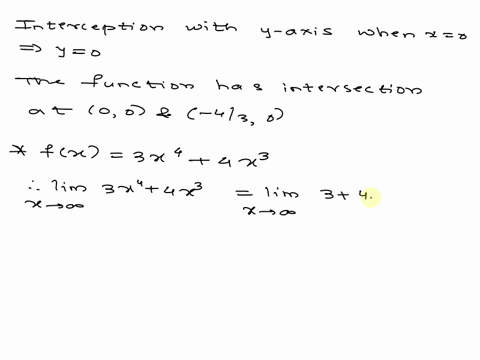 Interception with y-axis when x=0
⇒ y=0
The function has intersection
at (0, 0) & (-4/3, 0)
* f(x) = 3x⁴ + 4x³
∴ lim x→∞ 3x⁴+4x³ = lim x→∞ 3+4.